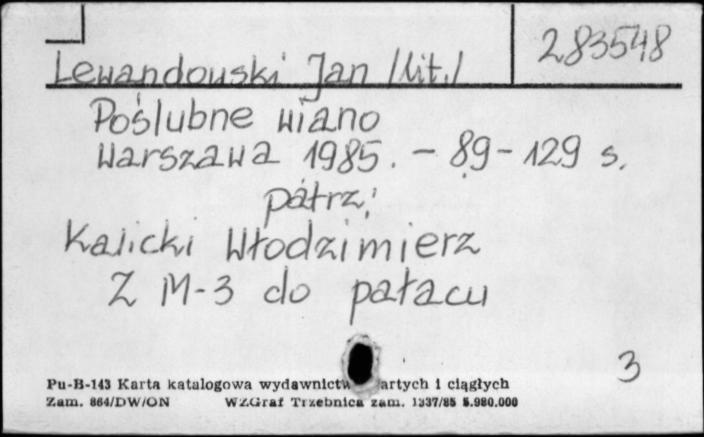 283548
Lewandowski Jan /lit./
Poślubne wiano
Warszawa 1985. - 89-129 s.
patrz:
Kalicki Włodzimierz
Z M-3 do pałacu
3
Pu-B-143 Karta katalogowa wydawnictw artych i ciągłych
Zam. 864/DW/ON WZGraf Trzebnica zam. 1337/85 5.980.000